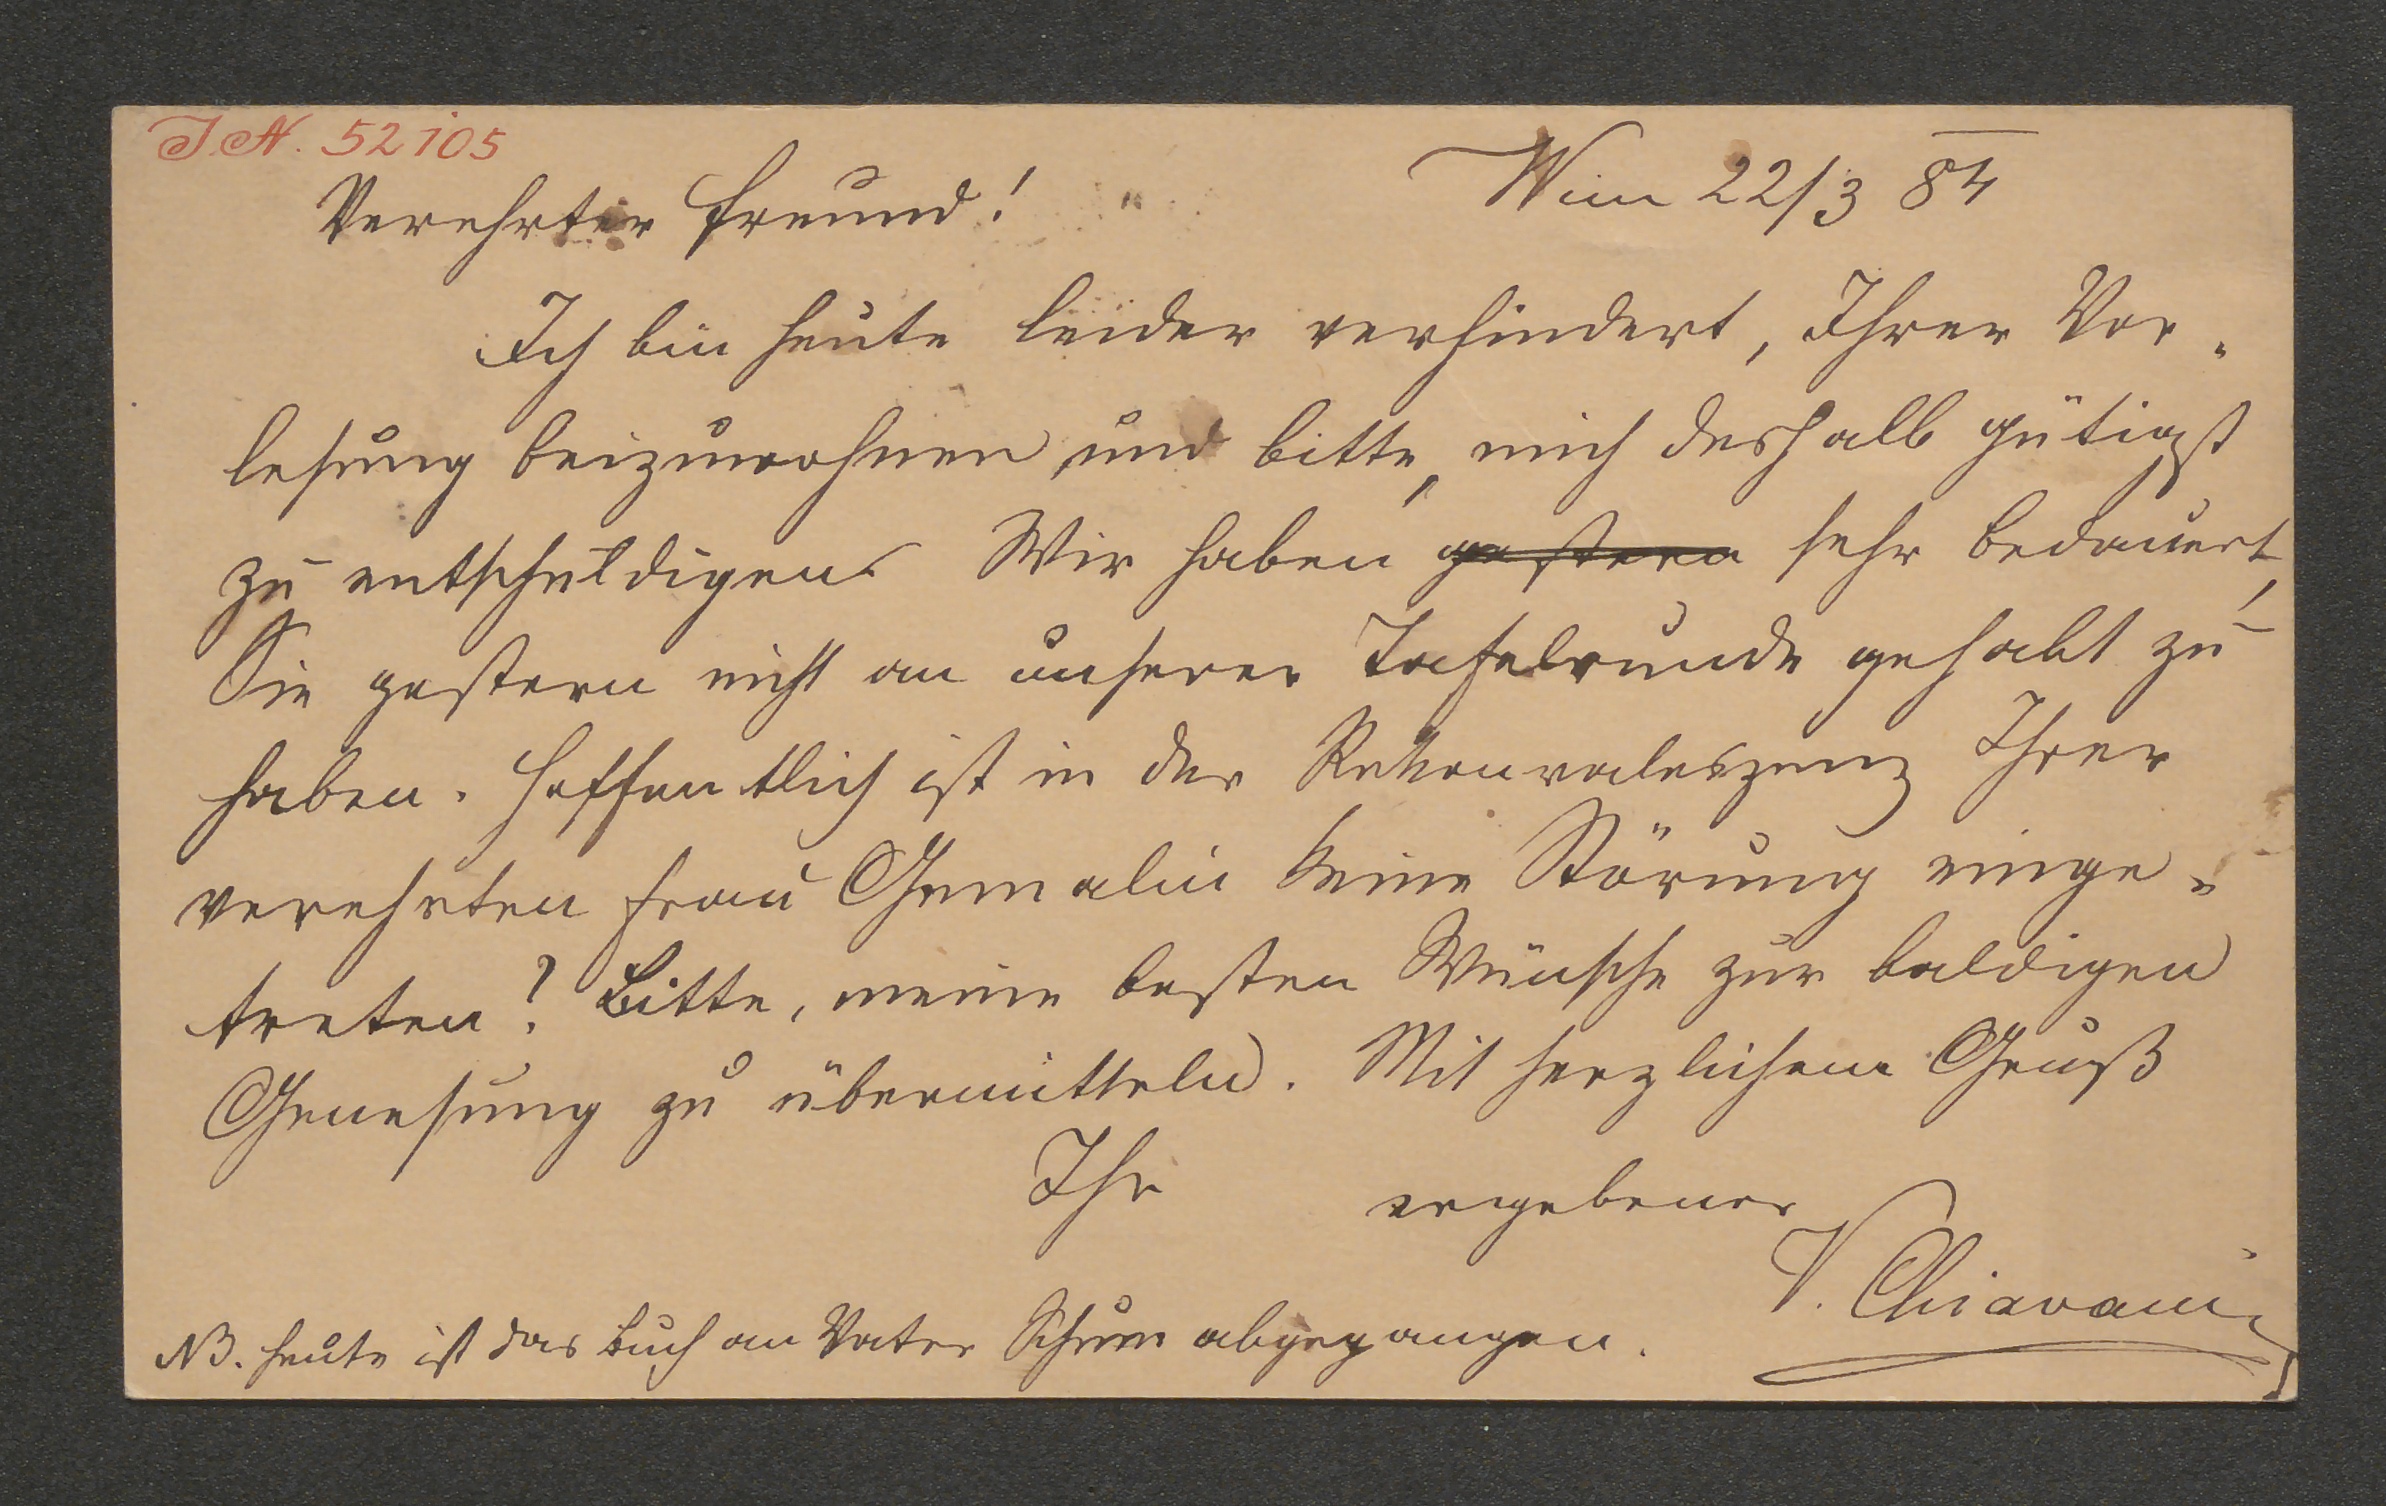 J.N. 52105
Wien 22/3 84
Verehrter Freund!
Ich bin heute leider verhindert, Ihrer Vor-
lesung beizuwohnen und bitte, mich deshalb gütigst
zu entschuldigen. Wir haben gestern sehr bedauert,
Sie gestern nicht an unserer Tafelrunde gehabt zu
haben. Hoffentlich ist in der Rekonvaleszenz Ihrer
verehrten Frau Gemalin keine Störung einge-
treten? Bitte, meine besten Wünsche zur baldigen
Genesung zu übermitteln. Mit herzlichem Gruß
Ihr ergebener
V. Chiavacci
NB. Heute ist das Buch an Vater abgegangen.